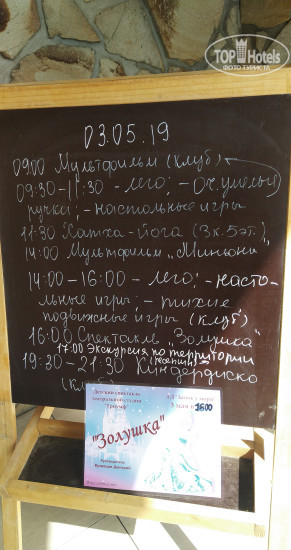 TOP Hotels
ФОТО ТУРИСТА
03.05.19
09:00 Мультфильм (клуб)
09:30-11:30 - лего; - Оч.умелые
ручки; - настольные игры
11:30 Хатха-йога (3к. 5эт.)
14:00 Мультфильм "Миньоны"
14:00 - 16:00 - лего; - насто-
льные игры; - тихие
подвижные игры (клуб)
16:00 Спектакль "Золушка"
17:00 Экскурсия по территории
19:30 - 21:30 Киндердиско
Детский спектакль
театральной студии
"Золушка"
3 мая в 16:00